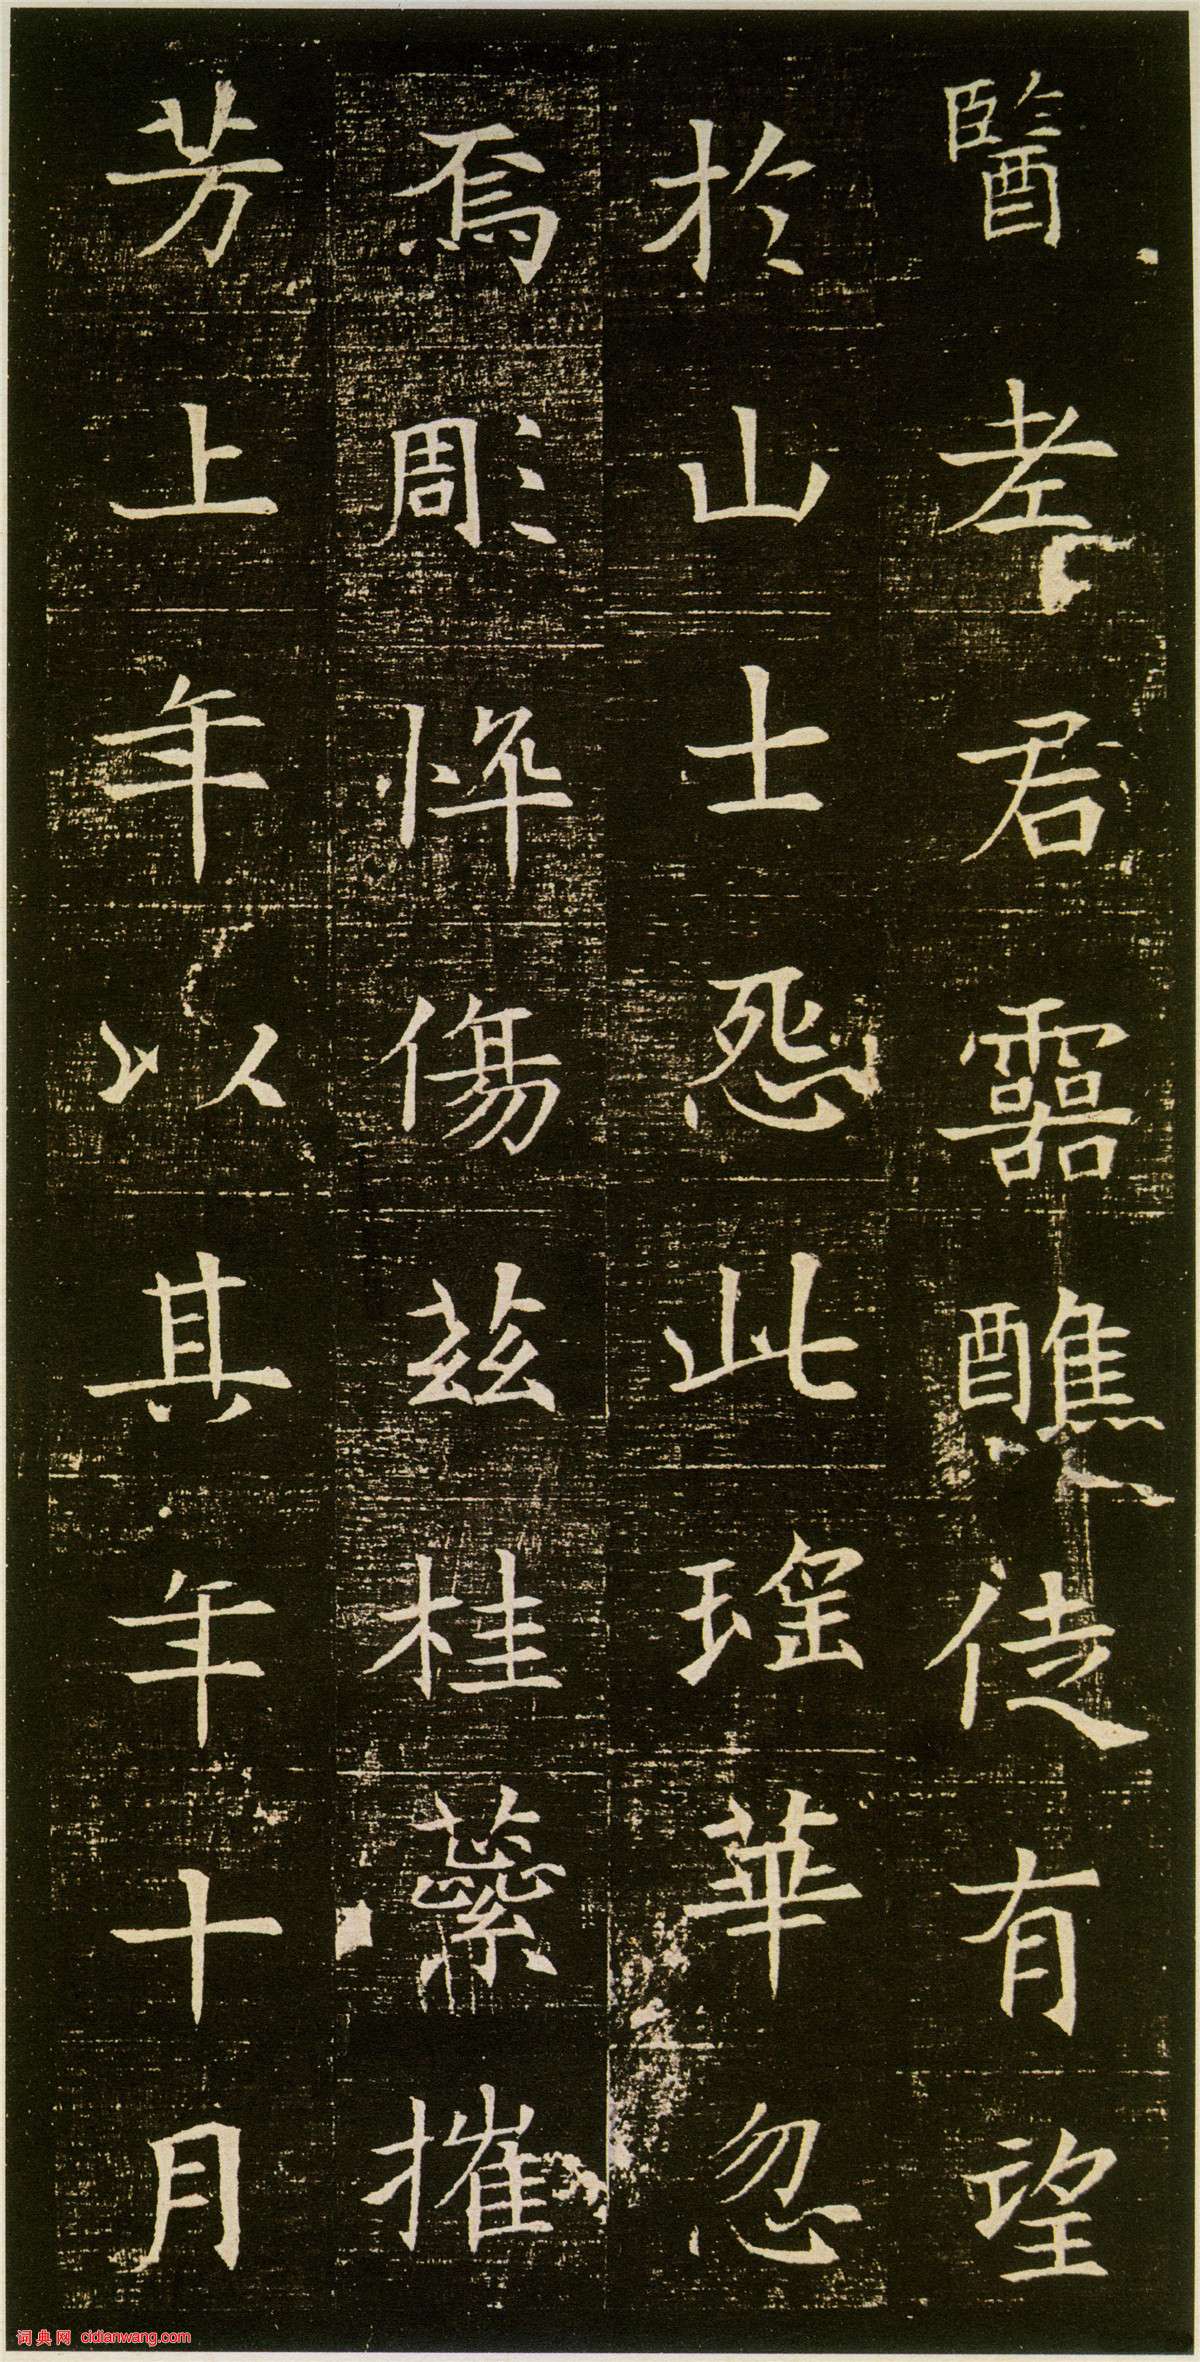 醫老君靈醮徒有望
於山士怨此瑤華忽
焉彫悴傷茲桂蘂摧
芳上年以其年十月
词典网 cidianwang.com